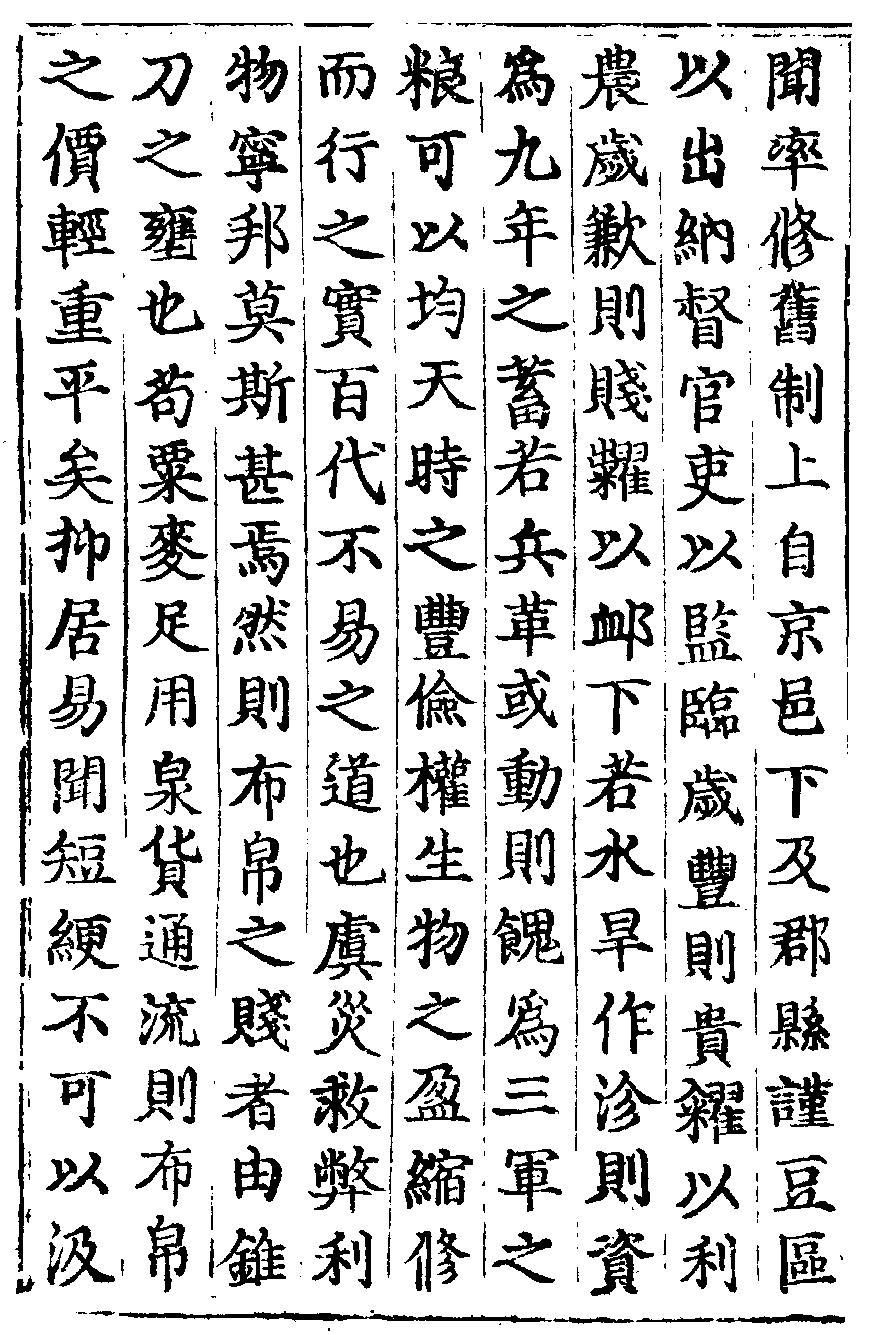 聞率修舊制上自京邑下及郡縣謹豆區
以出納督官吏以監臨歲豐則貴糴以利
農歲歉則賤糶以衈下若水旱作沴則資
爲九年之蓄若兵革或動則餽爲三軍之
粮可以均天時之豐儉權生物之盈縮修
而行之實百代不易之道也虞災救弊利
物寧邦莫斯甚焉然則布帛之賤者由錐
刀之壅也苟粟麥足用泉貨通流則布帛
之價輕重平矣抑居易聞短綆不可以汲